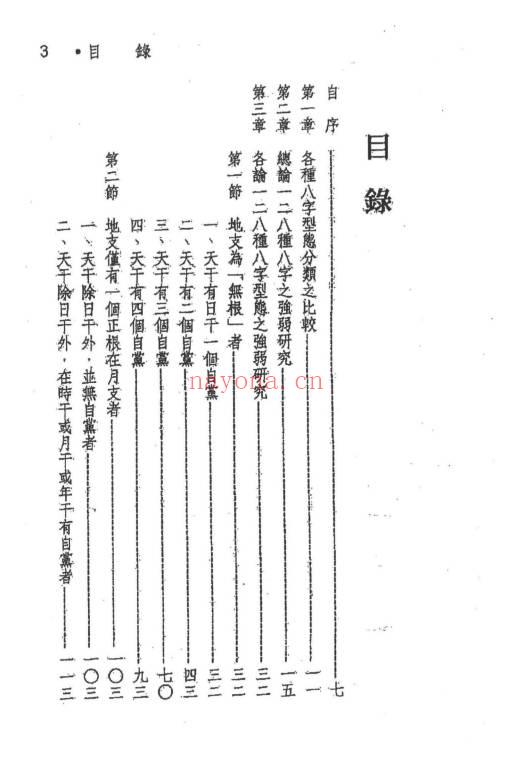 3 • 目 錄
目錄
自序 七
第一章 各種八字型態分類之比較 一一
第二章 總論一二八種八字之強弱研究 一五
第三章 各論一二八種八字型態之強弱研究 三二
第一節 地支為「無根」者 三二
一、天干有日干一個自黨 三二
二、天干有二個自黨 四三
三、天干有三個自黨 七〇
四、天干有四個自黨 九三
第二節 地支僅有一個正根在月支者 一〇三
一、天干除日干外，並無自黨者 一〇三
二、天干除日干外，在時干或月干或年干有自黨者 一一三
nayona.cn